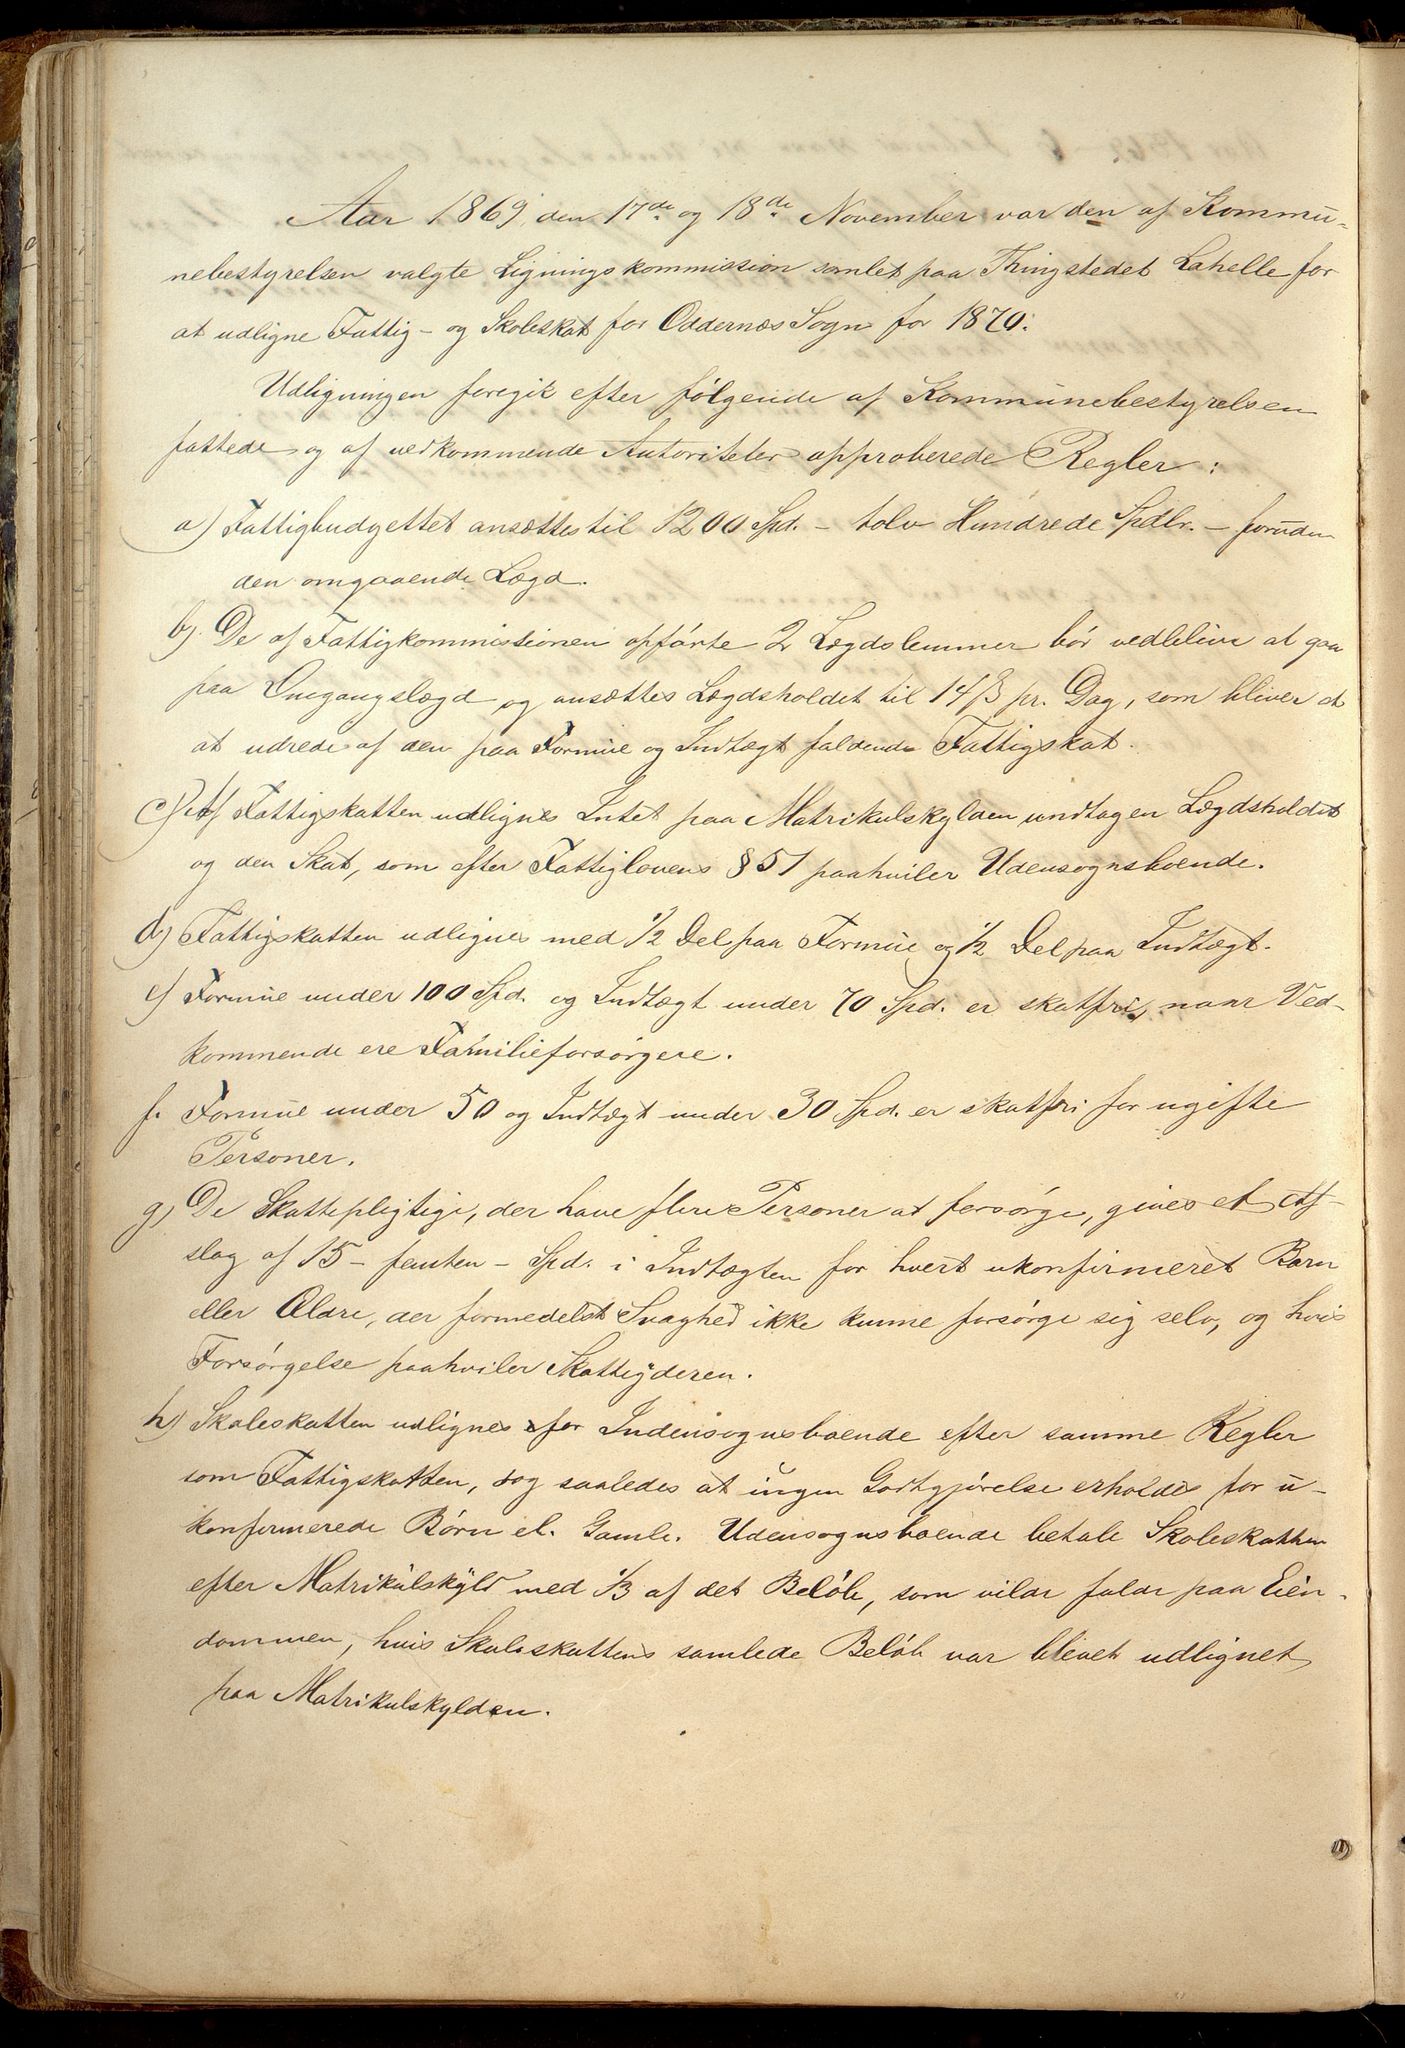 Aar 1869 den 17de og 18de November var den af Kommu-
nebestyrelsen valgte Ligningskommission samlet paa Thingstedet Lahelle for
at udligne Fattig- og Skoleskat for Oddernes Sogn for 1870.
Udligningen foregik efter følgende af Kommunebestyrelsen
fattede og af vedkommende Autoriteter approberede Regler:
a) Fattigbudgettet ansættes til 1200 Spd. - tolv Hundrede Spdlr. - foruden
den omgaaende Lægd.
b) De af Fattigkommissionen opførte 2 Lægdslemmer bør vedblive at gaa
paa Omgangslægd og ansættes Lægdsholdet til 14 β pr. Dag, som bliver
at udrede af den paa Formue og Indtægt faldende Fattigskat.
c) Af Fattigskatten udlignes Intet paa Matrikulskylden undtagen Lægdsholdet
og den Skat, som efter Fattiglovens § 51 paahviler Udensognsboende.
d) Fattigskatten udlignes med 1/2 Del paa Formue og 1/2 Del paa Indtægt.
e) Formue under 100 Spd. og Indtægt under 70 Spd. er skatfri, naar Ved-
kommende ere Familieforsørgere.
f. Formue under 50 og Indtægt under 30 Spd. er skatfri for ugifte
Personer.
g) De Skattepligtige, der have flere Personer at forsørge, gives et Af-
slag af 15 - femten - Spd. i Indtægten for hvert ukonfirmeret Barn
eller Ældre, der formedelst Svaghed ikke kunne forsørge sig selv, og hvis
Forsørgelse paahviler Skatteyderen.
h) Skoleskatten udlignes for Indensognsboende efter samme Regler
som Fattigskatten, dog saaledes at ingen Godtgjørelse erholdes for u-
konfirmerede Børn el. Gamle. Udensognsboende betale Skoleskatten
efter Matrikulskyld med 1/3 af det Beløb, som vilde falde paa Eien-
dommen, hvis Skoleskattens samlede Beløb var blevet udlignet
paa Matrikulskylden.